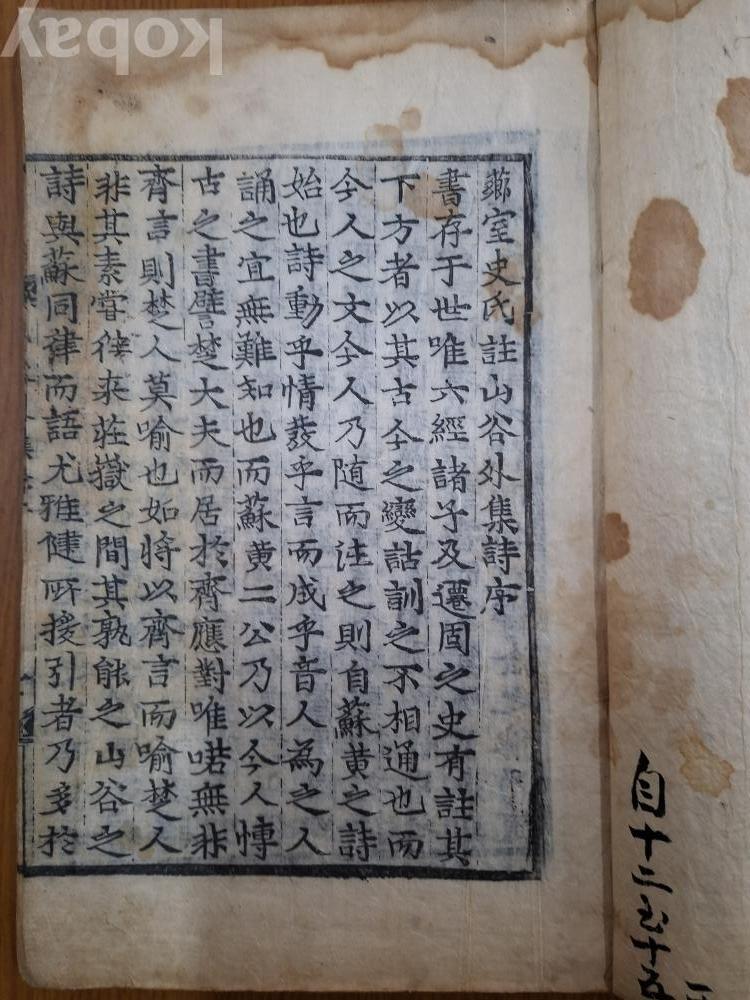 薌室史氏註山谷外集詩序
書存于世唯六經諸子及遷固之史有註其
下方者以其古今之變詁訓之不相通也而
今人之文今人乃随而注之則自蘇黄之詩
始也詩動乎情發乎言而成乎音人為之人
誦之宜無難知也而蘇黄二公乃以今人博
古之書譬楚大夫而居於齊應對唯喏無非
齊言則楚人莫喻也如將以齊言而喻楚人
非其素嘗徃来荘嶽之間其孰能之山谷之
詩與蘇同律而語尤雅健所援引者乃多於
自十二至十五
kobay